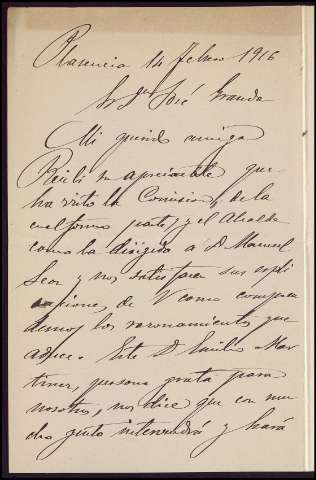 Plasencia 14 Febrero 1916
Sr Dn José Granda
Mi querido amigo
Recibí su apreciable que
ha visto la Comision, de la
cual formo parte, y el Alcalde
como la dirigida a D. Manuel
y nos satisfacen sus expli
caciones, de V como compren
demos los razonamientos que
aduce. Este D Emilio Mar
tinez, persona grata para
nosotros, nos dice que con mu
cho gusto intervendrá y hará